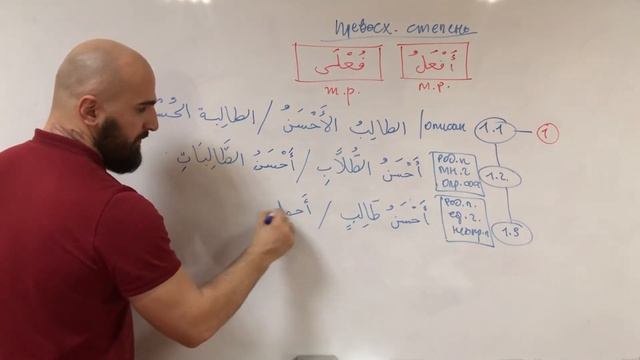 Превосх. степень
أَفْعَلُ فُعْلَى
м.р. m.p.
1 1.1 /описан الطالِبُ الأَحْسَنُ / الطالِبة الحُسْ
1.2. род.п мн.ч опр.сос أَحْسَنُ الطُّلَّابِ / أَحْسَنُ الطَّالِبَاتِ
1.3 род.п. ед.ч. неопр.п أَحْسَنُ طَالِبٍ / أَحـ